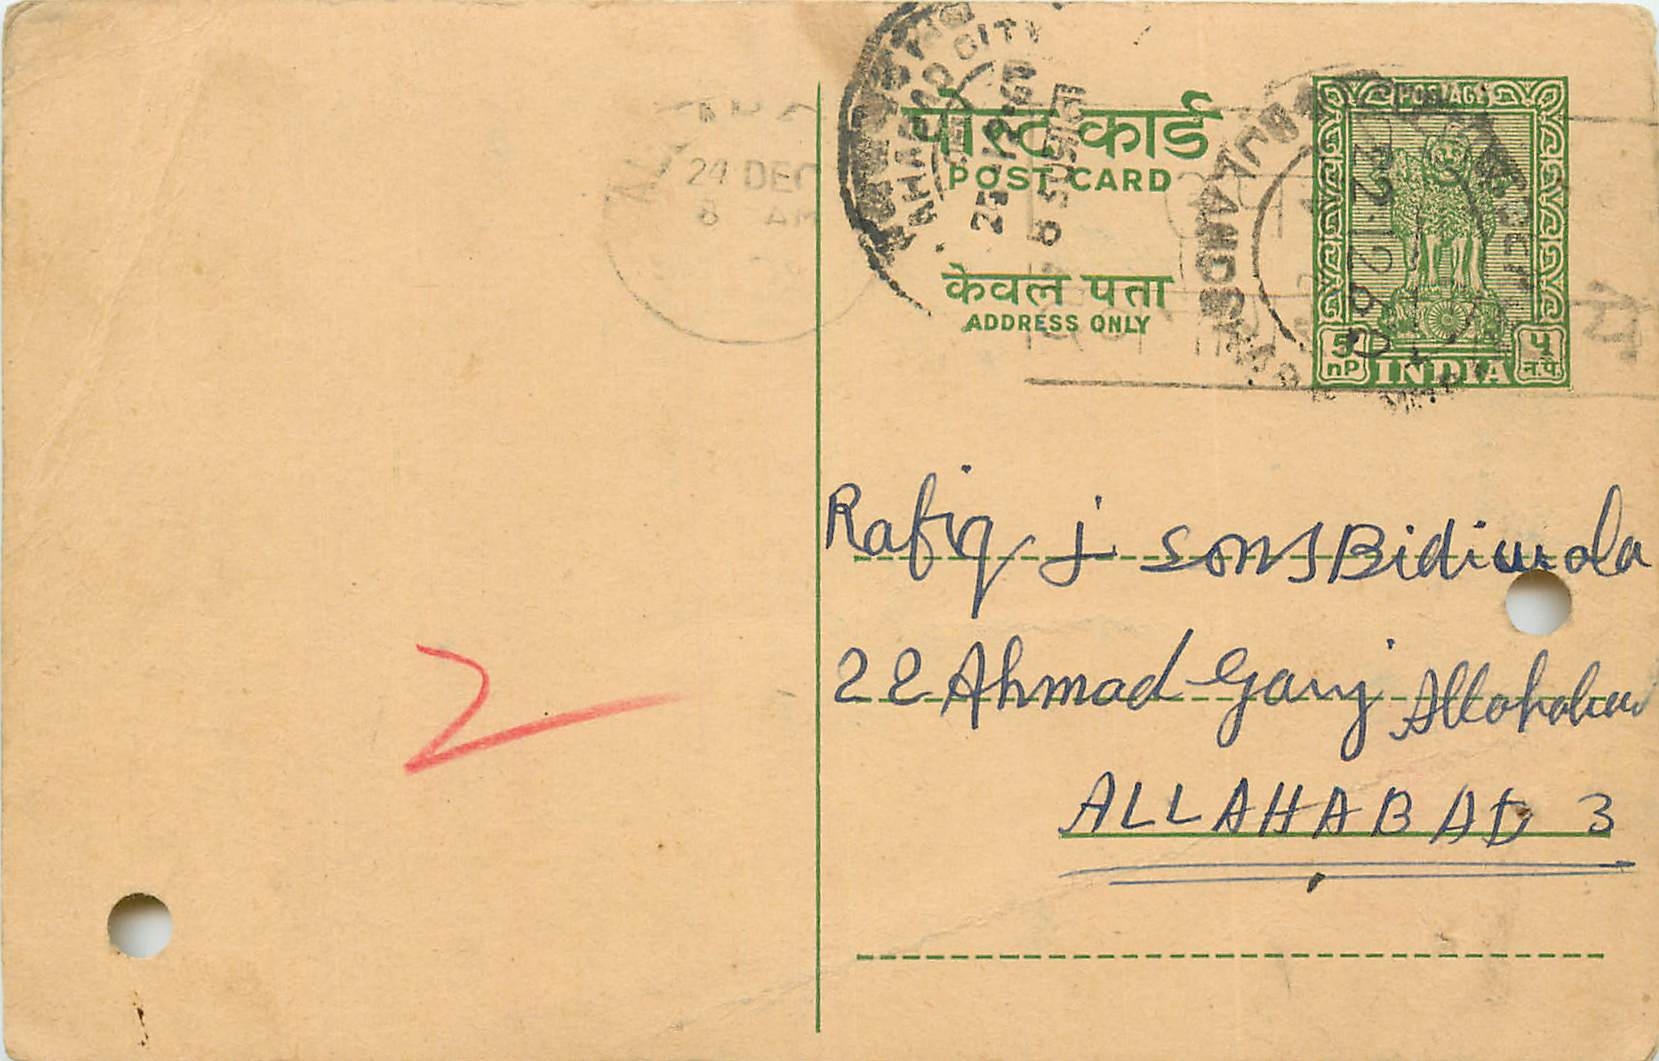 पोस्ट कार्ड
POST CARD
केवल पता
ADDRESS ONLY
POSTAGE
5 nP
INDIA
५ न.पै.
24 DEC
8 AM
CITY
Rafiq & sons Bidiwala
22 Ahmad Ganj Allahabad
ALLAHABAD 3
2